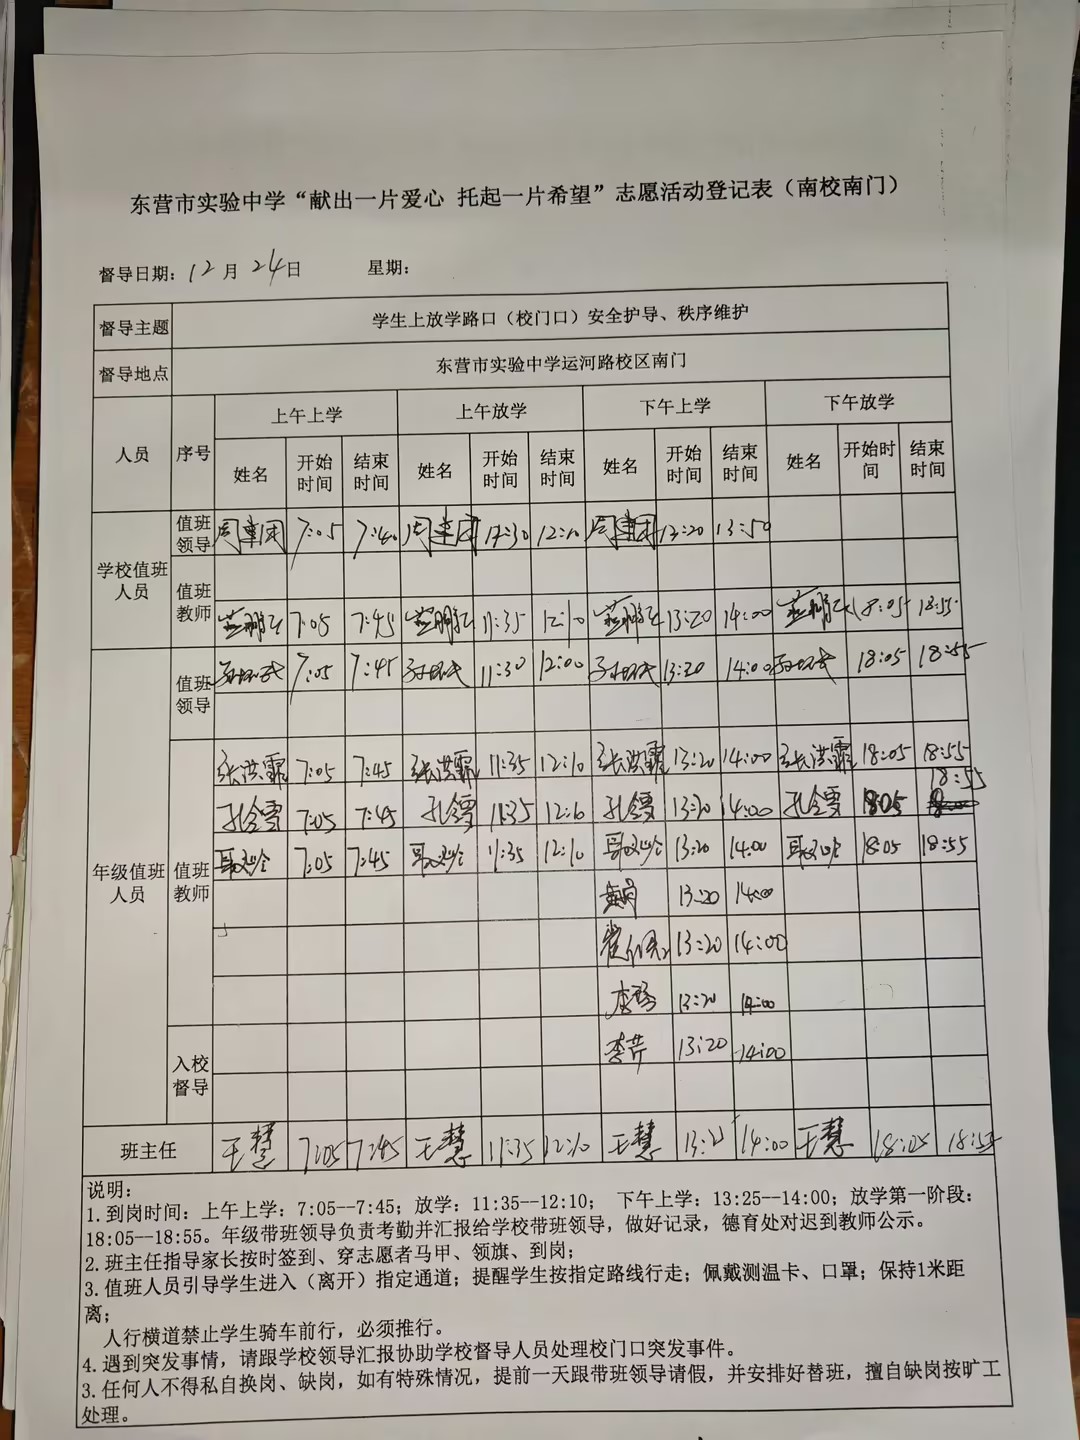 东营市实验中学“献出一片爱心 托起一片希望”志愿活动登记表（南校南门）
督导日期：12月24日 星期：
督导主题 学生上放学路口（校门口）安全护导、秩序维护
督导地点 东营市实验中学运河路校区南门
人员 序号 上午上学 上午放学 下午上学 下午放学
姓名 开始时间 结束时间 姓名 开始时间 结束时间 姓名 开始时间 结束时间 姓名 开始时间 结束时间
学校值班人员 值班领导 7:05 7:40 12:10 13:20 13:50
值班教师 7:05 7:45 11:35 12:10 13:20 14:00 18:05 18:55
年级值班人员 值班领导 7:05 7:45 11:30 12:00 13:20 14:00 18:05 18:55
值班教师 张洪霏 7:05 7:45 张洪霏 11:35 12:10 张洪霏 13:20 14:00 张洪霏 18:05 18:55
7:05 7:45 11:35 12:10 13:20 14:00 18:05 18:55
7:05 7:45 11:35 12:10 13:20 14:00 18:05 18:55
13:20 14:00
13:20 14:00
13:20 14:00
入校督导 李芹 13:20 14:00
班主任 王慧 7:05 7:45 王慧 11:35 12:10 王慧 14:00 王慧 18:05 18:55
说明：
1.到岗时间：上午上学：7:05--7:45；放学：11:35--12:10； 下午上学：13:25--14:00；放学第一阶段：
18:05--18:55。年级带班领导负责考勤并汇报给学校带班领导，做好记录，德育处对迟到教师公示。
2.班主任指导家长按时签到、穿志愿者马甲、领旗、到岗；
3.值班人员引导学生进入（离开）指定通道；提醒学生按指定路线行走；佩戴测温卡、口罩；保持1米距
离；
人行横道禁止学生骑车前行，必须推行。
4.遇到突发事情，请跟学校领导汇报协助学校督导人员处理校门口突发事件。
3.任何人不得私自换岗、缺岗，如有特殊情况，提前一天跟带班领导请假，并安排好替班，擅自缺岗按旷工
处理。